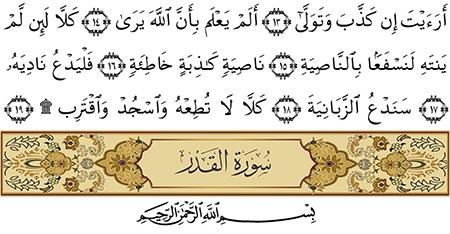 أَرَءَيْتَ إِن كَذَّبَ وَتَوَلَّىٰٓ ﴿١٣﴾ أَلَمْ يَعْلَم بِأَنَّ ٱللَّهَ يَرَىٰ ﴿١٤﴾ كَلَّا لَئِن لَّمْ
يَنتَهِ لَنَسْفَعًۢا بِٱلنَّاصِيَةِ ﴿١٥﴾ نَاصِيَةٍ كَٰذِبَةٍ خَاطِئَةٍ ﴿١٦﴾ فَلْيَدْعُ نَادِيَهُۥ
﴿١٧﴾ سَنَدْعُ ٱلزَّبَانِيَةَ ﴿١٨﴾ كَلَّا لَا تُطِعْهُ وَٱسْجُدْ وَٱقْتَرِب ۩ ﴿١٩﴾
سُورَةُ القَدْرِ
بِسْمِ ٱللَّهِ ٱلرَّحْمَٰنِ ٱلرَّحِيمِ